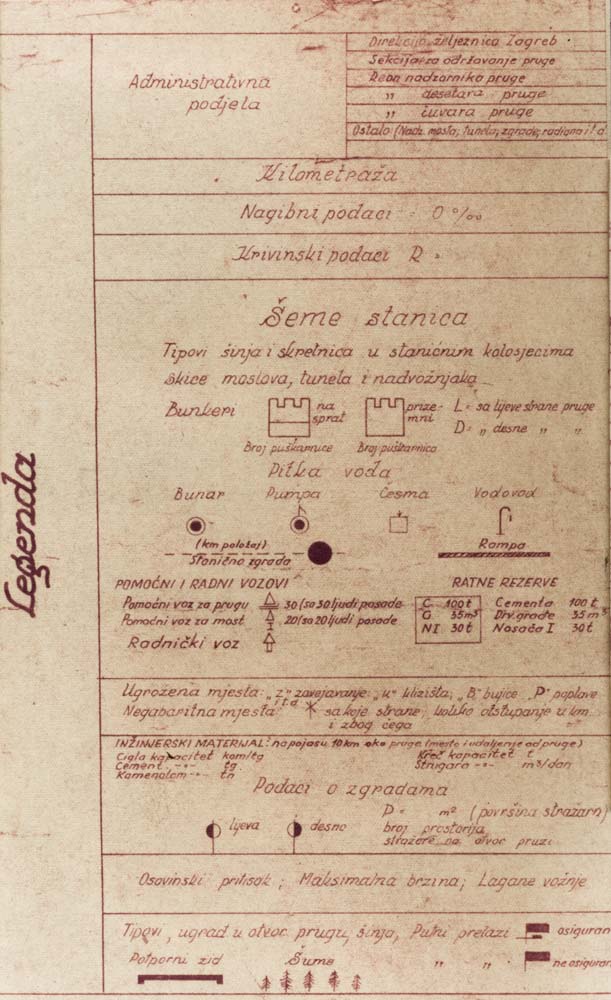 Legenda
Administrativna
podjela
Direkcija željeznica Zagreb
Sekcija za održavanje pruge
Reon nadzornika pruge
„ desetara pruge
„ čuvara pruge
Ostalo (Nadz. mosta, tunela, zgrade, radiona i t d
Kilometraža
Nagibni podaci = 0 ‰
Krivinski podaci R =
Šeme stanica
Tipovi šinja i skretnica u staničnim kolosjecima
Skice mostova, tunela i nadvožnjaka
Bunkeri na sprat prize-mni L = sa lijeve strane pruge
D = „ desne „ „
Broj puškarnice Broj puškarnica
Pitka voda
Bunar Pumpa Česma Vodovod
(km položaj)
Stanična zgrada Rampa
POMOĆNI I RADNI VOZOVI RATNE REZERVE
Pomoćni voz za prugu 30 (sa 30 ljudi posade C 100 t Cementa 100 t
Pomoćni voz za most 20 (sa 20 ljudi posade G 35 m³ Drv. građe 35 m³
Radnički voz NI 30 t Nosača I 30 t
Ugrožena mjesta: „Z" zavejavanje „K" klizišta, „B" bujice „P" poplave
i t.d
Negabaritna mjesta sa koje strane, koliko otstupanje u cm.
i zbog čega
INŽINJERSKI MATERIJAL: na pojasu 10 km oko pruge (mesto i udaljenje od pruge)
Cigla kapacitet kom/tg Kreč kapacitet t
Cement -"- tg Strugara -"- m³/dan
Kamenolom -"- tn
Podaci o zgradama
P = m² (površina stražarn
lijeva desno broj prostorija
stražare na otvor. pruzi
Osovinski pritisak ; Maksimalna brzina ; Lagane vožnje
Tipovi, ugrad. u otvor. prugu, šinja, Putni prelazi osiguran
Potporni zid Šume „ „ ne osiguran